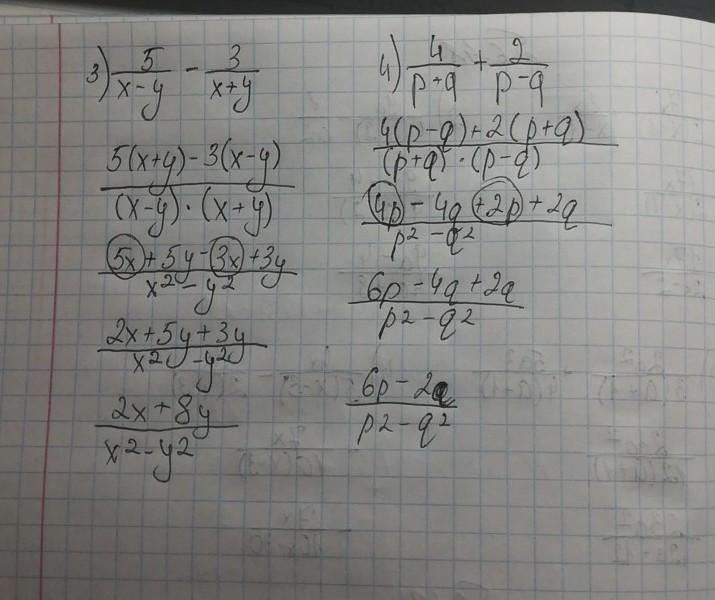 3) 5/(x-y) - 3/(x+y)
(5(x+y) - 3(x-y))/((x-y)·(x+y))
(5x + 5y - 3x + 3y)/(x² - y²)
(2x + 5y + 3y)/(x² - y²)
(2x + 8y)/(x² - y²)
4) 4/(p+q) + 2/(p-q)
(4(p-q) + 2(p+q))/((p+q)·(p-q))
(4p - 4q + 2p + 2q)/(p² - q²)
(6p - 4q + 2q)/(p² - q²)
(6p - 2q)/(p² - q²)